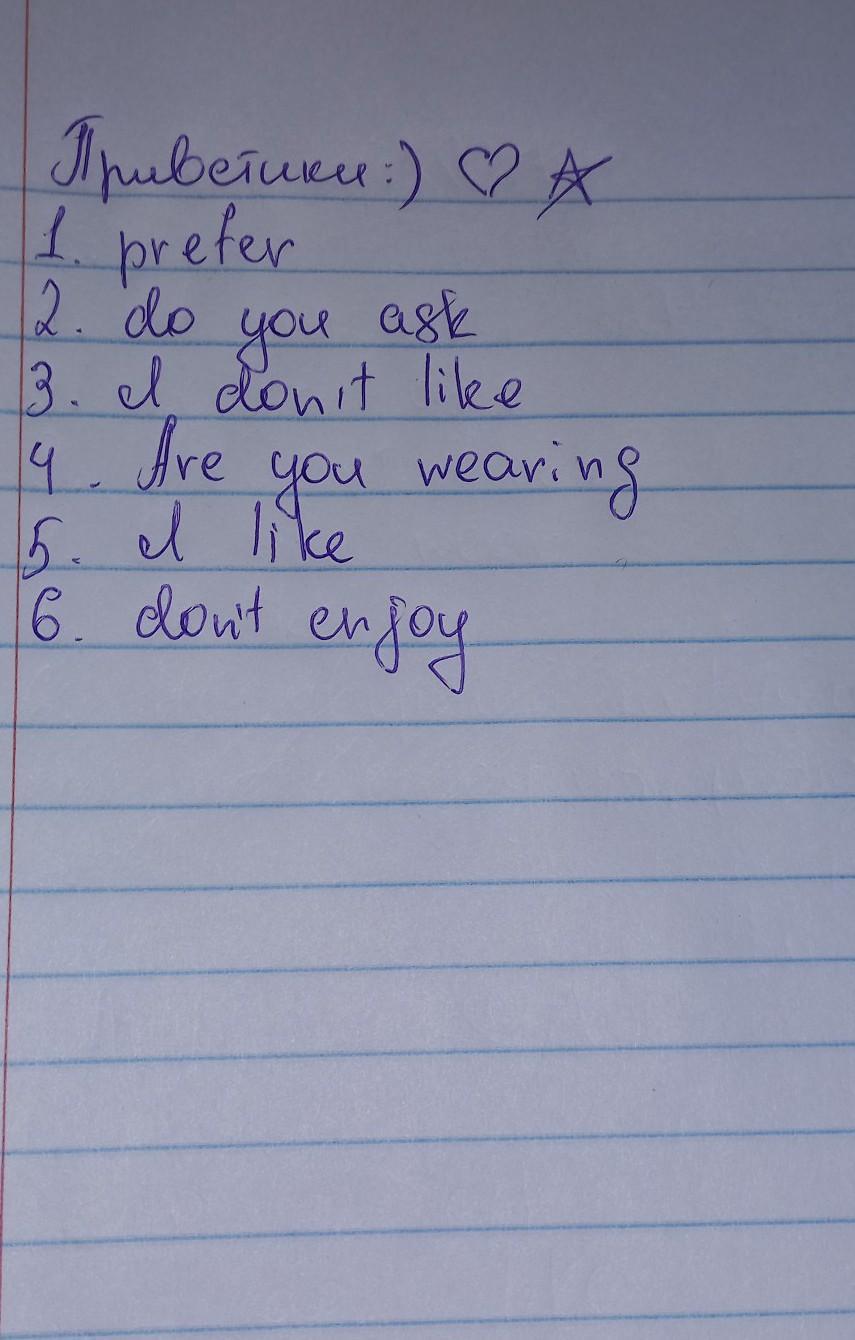 Приветики:) ♡ ☆
1. prefer
2. do you ask
3. I don't like
4. Are you wearing
5. I like
6. don't enjoy